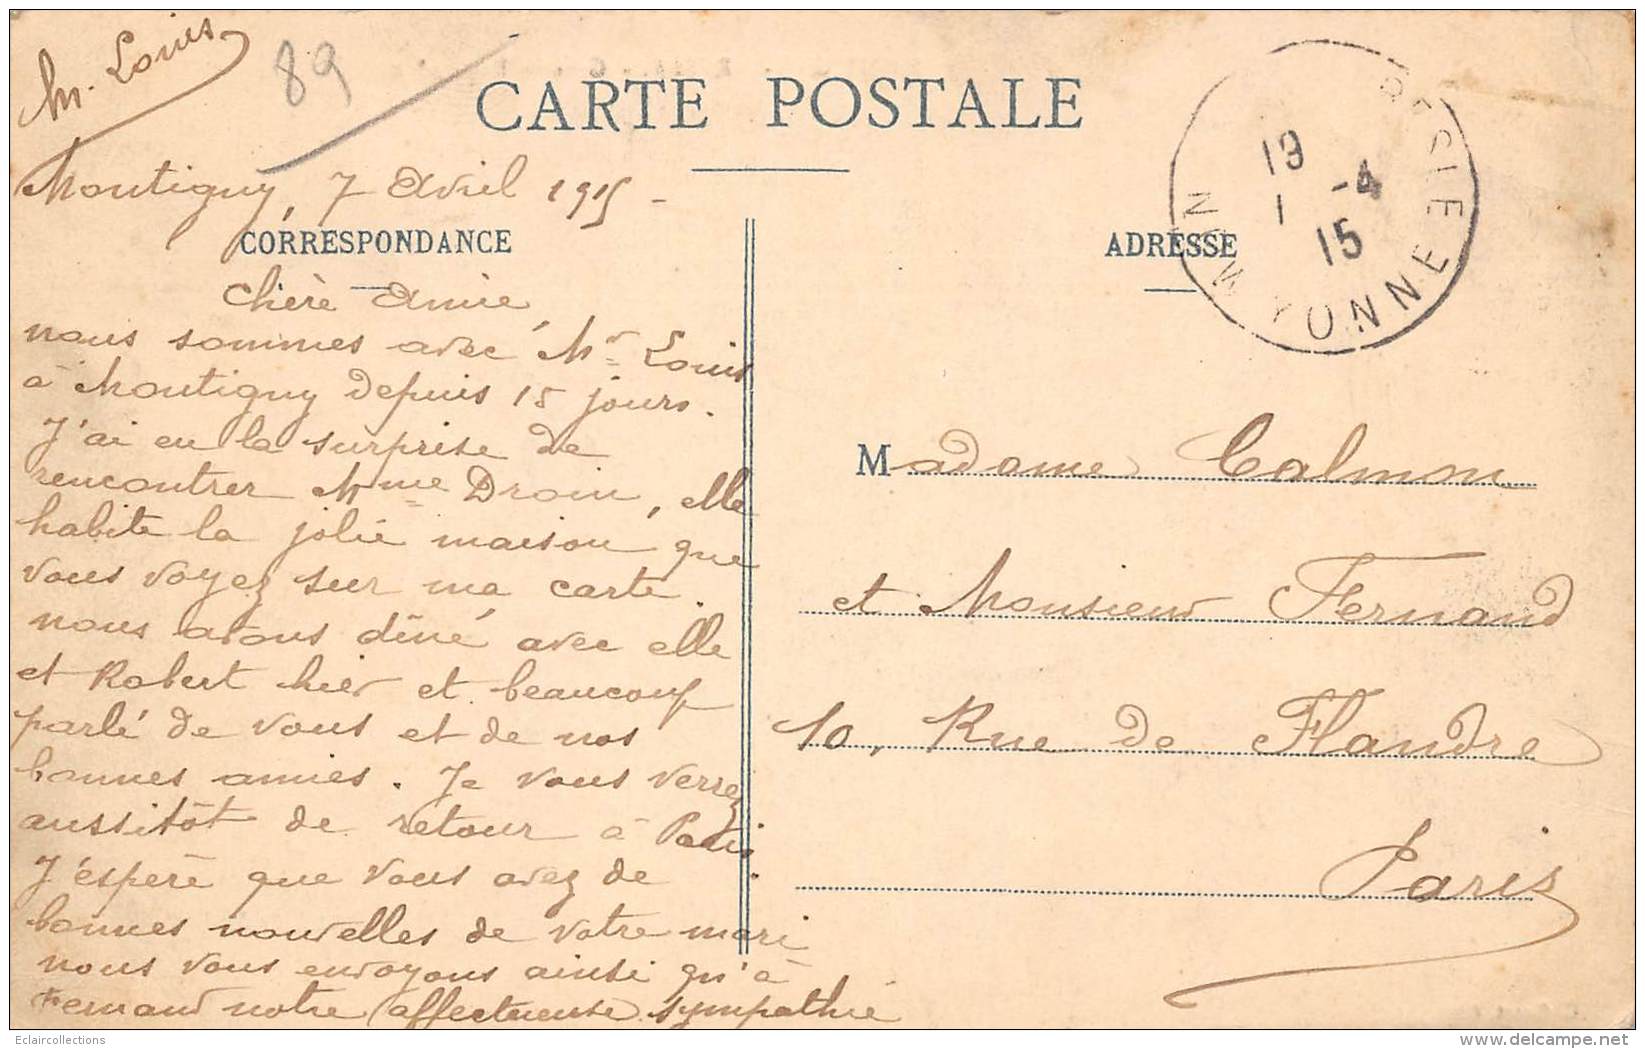 M. Louis
89
CARTE POSTALE
Montigny, 7 Avril 1915 -
CORRESPONDANCE
Chère Amie,
nous sommes avec Mr Louis
à Montigny depuis 15 jours.
J'ai eu la surprise de
rencontrer Mme Droin, elle
habite la jolie maison que
vous voyez sur ma carte.
nous avons dîné avec elle
et Robert hier et beaucoup
parlé de vous et de nos
bonnes amies. Je vous verrez
aussitôt de retour à Paris.
J'espère que vous avez de
bonnes nouvelles de votre mari
nous vous envoyons ainsi qu'à
Fernand notre affectueuse sympathie
19
1 -4
15
YONNE
ADRESSE
Madame Calmon
et Monsieur Fernand
10, Rue de Flandre
Paris
Eclaircollections
www.delcampe.net